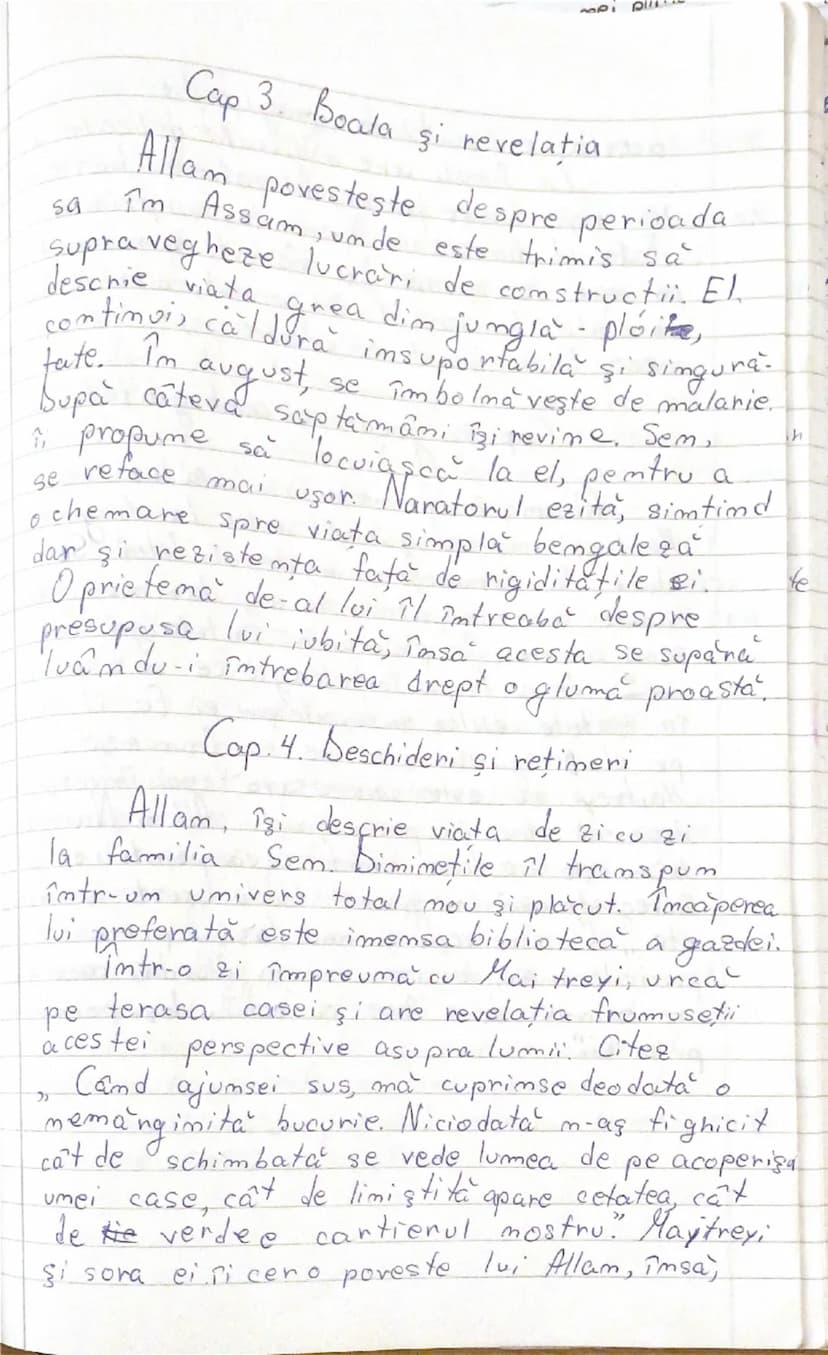 Cap 3. Boala și revelația
Allam povestește despre perioada
sa în Assam, unde este trimis să
supravegheze lucrări de constructii. El,
descrie viata grea din junglă - plói,
continui, căldură insuportabilă și singură-
tate. În august, se îmbolnăvește de malarie.
După câteva săptămâni își revine. Sen,
îi propune să locuiască la el, pentru a
se reface mai ușor. Naratorul ezită, simtind
o chemare spre viața simplă bengaleză
dar și rezistența față de rigiditățile ei.
O prietenă de-al lui îl întreabă despre
presupusa lui iubită, însă acesta se supără
luându-i întrebarea drept o glumă proastă.
Cap. 4. Deschideri și rețineri
Allam, își descrie viața de zi cu zi
la familia Sen. Diminețile îl transpun
într-un univers total nou și plăcut. Încăperea
lui preferată este imensa bibliotecă a gazdei.
Într-o zi împreună cu Maitreyi, urcă
pe terasa casei și are revelația frumuseții
acestei perspective asupra lumii. Citez
„Când ajunsei sus, mă cuprinse deodată o
nemărginită bucurie. Niciodată n-aș fi ghicit
cât de schimbată se vede lumea de pe acoperișa
unei case, cât de liniștită apare cetatea, cât
de verde e cartierul nostru." Maytreyi
și sora ei îi cer o poveste lui Allam, însă,